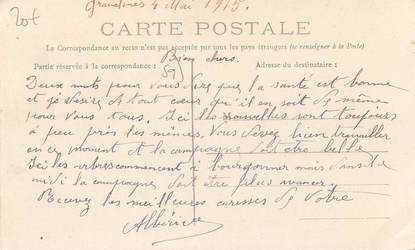 Gravelines 4 Mai 1915.
20f
CARTE POSTALE
La Correspondance au recto n'est pas acceptée par tous les pays étrangers (se renseigner à la Poste)
Bien chers.
Partie réservée à la correspondance :
59
Adresse du destinataire :
Deux mots pour vous dire que la santé est bonne
et je désire de tout cœur qu'il en soit de même
pour vous tous. Ici les nouvelles sont toujours
à peu près des mêmes. Vous devez bien travailler
en ce moment et la campagne doit être belle
Ici les arbres commencent à bourgonner mais dans le
midi la campagne doit être plus avancer.
Recevez les meilleures caresses de votre